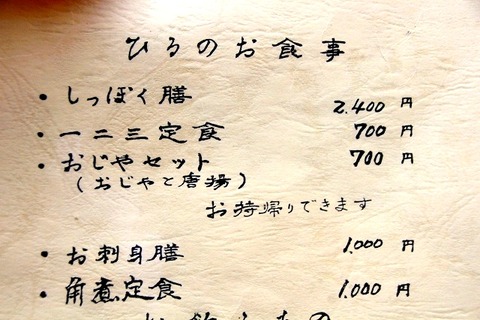 ひるのお食事
・しっぽく膳 2.400円
・一二三定食 700円
・おじやセット 700円
(おじやと唐揚)
お持帰りできます
・お刺身膳 1.000円
・角煮定食 1.000円